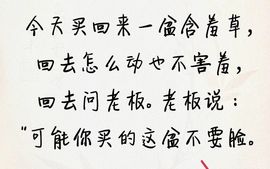 今天买回来一盆含羞草，
回去怎么动也不害羞，
回去问老板。老板说：
“可能你买的这盆不要脸。